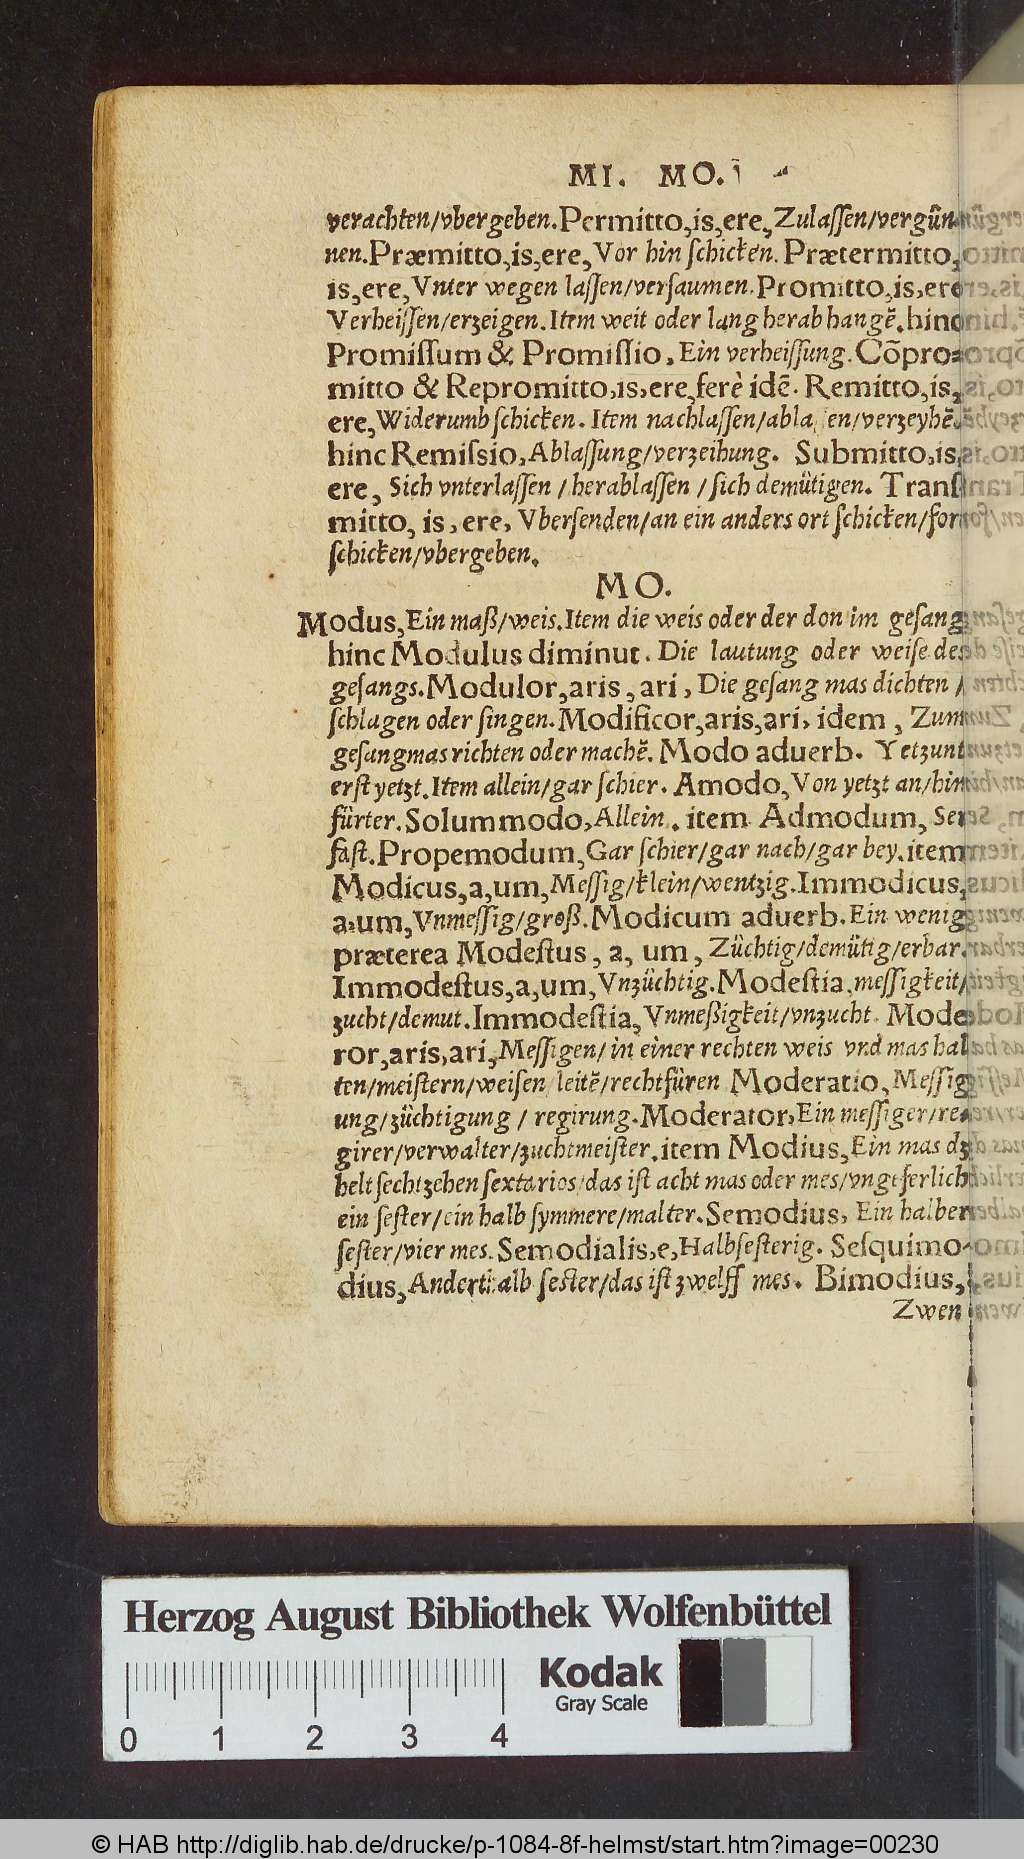 MI. MO.
verachten/vbergeben. Permitto, is, ere, Zulaſſen/vergün-
nen. Præmitto, is, ere, Vor hin ſchicken. Prætermitto,
is, ere, Vnter wegen laſſen/verſaumen. Promitto, is, ere
Verheiſſen/erzeigen. Item weit oder lang herab hangē. hinc
Promiſſum & Promiſſio, Ein verheiſſung. Cōpro-
mitto & Repromitto, is, ere, ferè idē. Remitto, is,
ere, Widerumb ſchicken. Item nachlaſſen/ablaſſen/verzeyhē.
hinc Remiſsio, Ablaſſung/verzeihung. Submitto, is,
ere, Sich vnterlaſſen / herablaſſen / ſich demütigen. Tranſ
mitto, is, ere, Vberſenden/an ein anders ort ſchicken/fort
ſchicken/vbergeben.
MO.
Modus, Ein maß/weis. Item die weis oder der don im geſang
hinc Modulus diminut. Die lautung oder weiſe des
geſangs. Modulor, aris, ari, Die geſang mas dichten /
ſchlagen oder ſingen. Modificor, aris, ari, idem, Zum
geſangmas richten oder machē. Modo aduerb. Yetzunt
erſt yetzt. Item allein/gar ſchier. Amodo, Von yetzt an/hin
fürter. Solummodo, Allein. item Admodum, Ser
faſt. Propemodum, Gar ſchier/gar nach/gar bey. item
Modicus, a, um, Meſſig/klein/wentzig. Immodicus,
a, um, Vnmeſſig/groß. Modicum aduerb. Ein wenig
præterea Modeſtus, a, um, Züchtig/demütig/erbar.
Immodeſtus, a, um, Vnzüchtig. Modeſtia, meſſigkeit/
zucht/demut. Immodeſtia, Vnmeßigkeit/vnzucht. Mode
ror, aris, ari, Meſſigen/in einer rechten weis vnd mas hal
ten/meiſtern/weiſen/leitē/rechtfüren Moderatio, Meſſig
ung/züchtigung / regirung. Moderator, Ein meſſiger/re
girer/verwalter/zuchtmeiſter. item Modius, Ein mas dz
helt ſechtzehen ſextarios/das iſt acht mas oder mes/vngeferlich
ein ſeſter/ein halb ſymmere/malter. Semodius, Ein halber
ſeſter/vier mes. Semodialis, e, Halbſeſterig. Seſquimo-
dius, Anderthalb ſeſter/das iſt zwelff mes. Bimodius,
Zwen
Herzog August Bibliothek Wolfenbüttel
Kodak
Gray Scale
0 1 2 3 4
© HAB http://diglib.hab.de/drucke/p-1084-8f-helmst/start.htm?image=00230